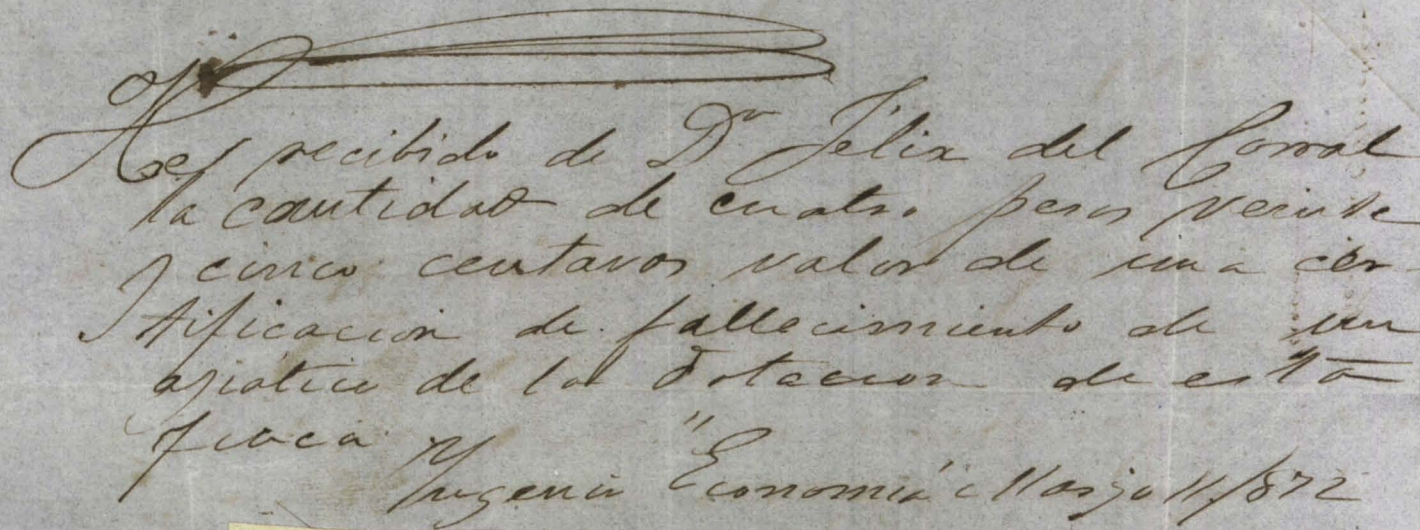 He recibido de Dn Félix del Corral
la cantidad de cuatro pesos veinte
y cinco centavos valor de una cer-
tificacion de fallecimiento de un
asiatico de la dotacion de esta
finca
Yngenio "Economia" Marzo 11/872